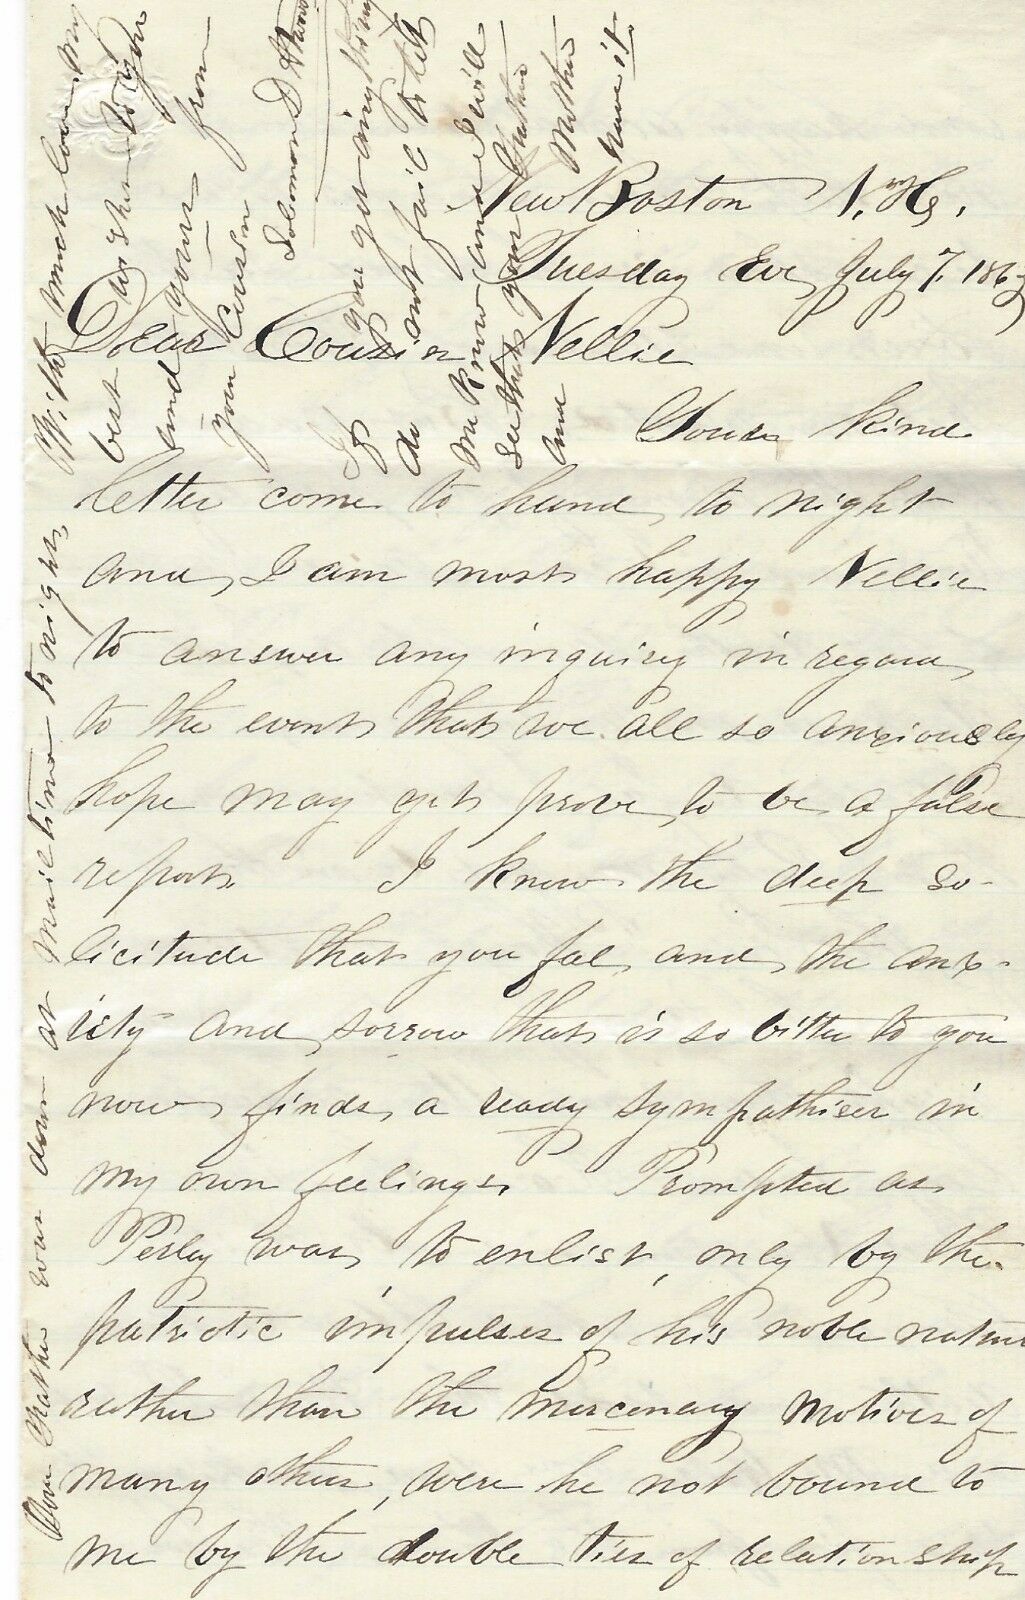 New Boston N. H.,
Tuesday Eve July 7, 1863
Dear Cousin Nellie
Your kind
letter come to hand to night
and, I am most happy Nellie
to answer any inquiry in regard
to the event that we all so anxiously
hope may yet prove to be a false
report. I know the deep so-
licitude that you feel and the anx-
iety and sorrow that is so bitter to you
now finds a ready sympathiser in
my own feelings. Prompted as
Perley was to enlist, only by the
patriotic impulses of his noble nature
rather than the mercenary motives of
many others, were he not bound to
me by the double ties of relationship
Your Father was down at Mail time to night,
With much love, my
best wishes to you
and yours from
your Cousin
Solomon D
If you get any thing
do not fail to let
me know and I will
see that your Father
and Mother
have it.